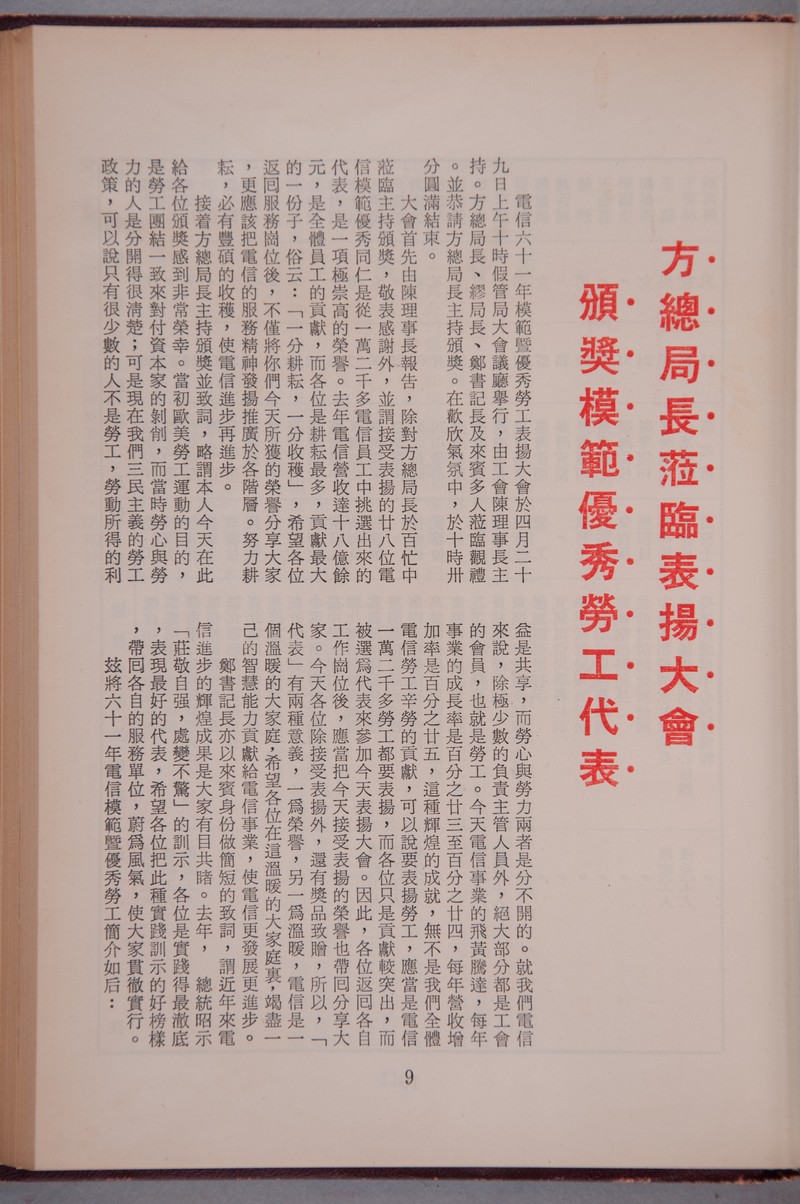 方總局長蒞臨表揚大會
頒獎模範優秀勞工代表
電信六十一年模範暨優秀勞工表揚大會於四月二十
九日上午十時假管局大會議廳舉行，由工會陳理事長主
持。方總局長、繆局長、鄭書記長及來賓多人蒞臨觀禮
。並恭請方總局長主持頒獎。在歡欣氣氛中，於十時卅
分圓滿結束。
大會首先由陳理事長報告，除對方總局長於百忙中
蒞臨主持頒獎，敬表感謝外，並謂接受表揚的廿八位電
信模範優秀同仁是從一萬二千多電信員工中挑選出來的
代表，是一項極崇高的榮譽。去年電信營收達十八億餘
元，是全體員工的貢獻，而各位是耕耘最多，貢獻最大
的一份子，俗云：「一分耕耘，一分收穫」，希望各位
返囘服務崗位後，不僅將你們今天所獲的榮譽分享大家
，更應該把電信的服務精神發揚推廣於各階層。努力耕
耘，必有豐碩的收穫，使電信進步再進步。
接着方總局長主持頒獎並致詞，略謂本人今天在此
給各位頒獎感到非常榮幸。當初歐美勞工運動的目的，
是勞工團結一致來對付資本家的剝削，而當時勞心與勞
力的人是分開得很清楚；可是現在我們三民主義的勞工
政策，可以說只有很少數的人不是勞工，勞動所得的利
益是共享，而勞心與勞力兩者是分不開的。就我們電信
來說，除極少數的負責主管人員外，絕大部分都是工會
的會員，也就是勞工。今天電信事業的飛黃騰達，每年
事業的成長率是百分之廿三至百分之廿四，每年營收增
加率是百分之廿五，這種輝煌的成就，無不是我們全體
電信勞工辛勞的貢獻，可以說要表揚勞工，應當是電信
一萬二千多勞工都要表揚，而各位只是貢獻較突出，而
被選爲代表來參加今天表揚大會。因此，各位返囘各自
工作崗位後，應當把今天接受表揚的榮譽也帶囘分享大
家。今天各位除接受表揚外，還有獎品致贈，所以，「
代表」有兩種意義，一爲榮譽，另一爲溫暖，電信是一
個溫暖的大家庭，希望各位在這溫暖的大家庭裏，竭盡一
己的智慧能力貢獻給電信事業，使電信更發展更進步。
鄭書記長亦以來賓身份做簡短的致詞，謂近年來電
信進步的輝煌成果是大家有目共睹。去年，　總統昭示
「莊敬自强，處變不驚」的訓示，各位是實踐得最澈底
，表現最好的代表，希望各位把此種實踐訓示的好榜樣
，帶囘各自的服務單位，蔚爲風氣，使大家貫徹實行。
玆將六十一年電信模範暨優秀勞工簡介如后：
9